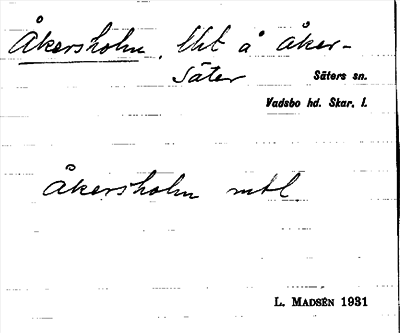 Åkersholm. Utt å Åker-
Säter Säters sn.
Vadsbo hd. Skar. l.
Åkersholm mtl
L. MADSÉN 1931